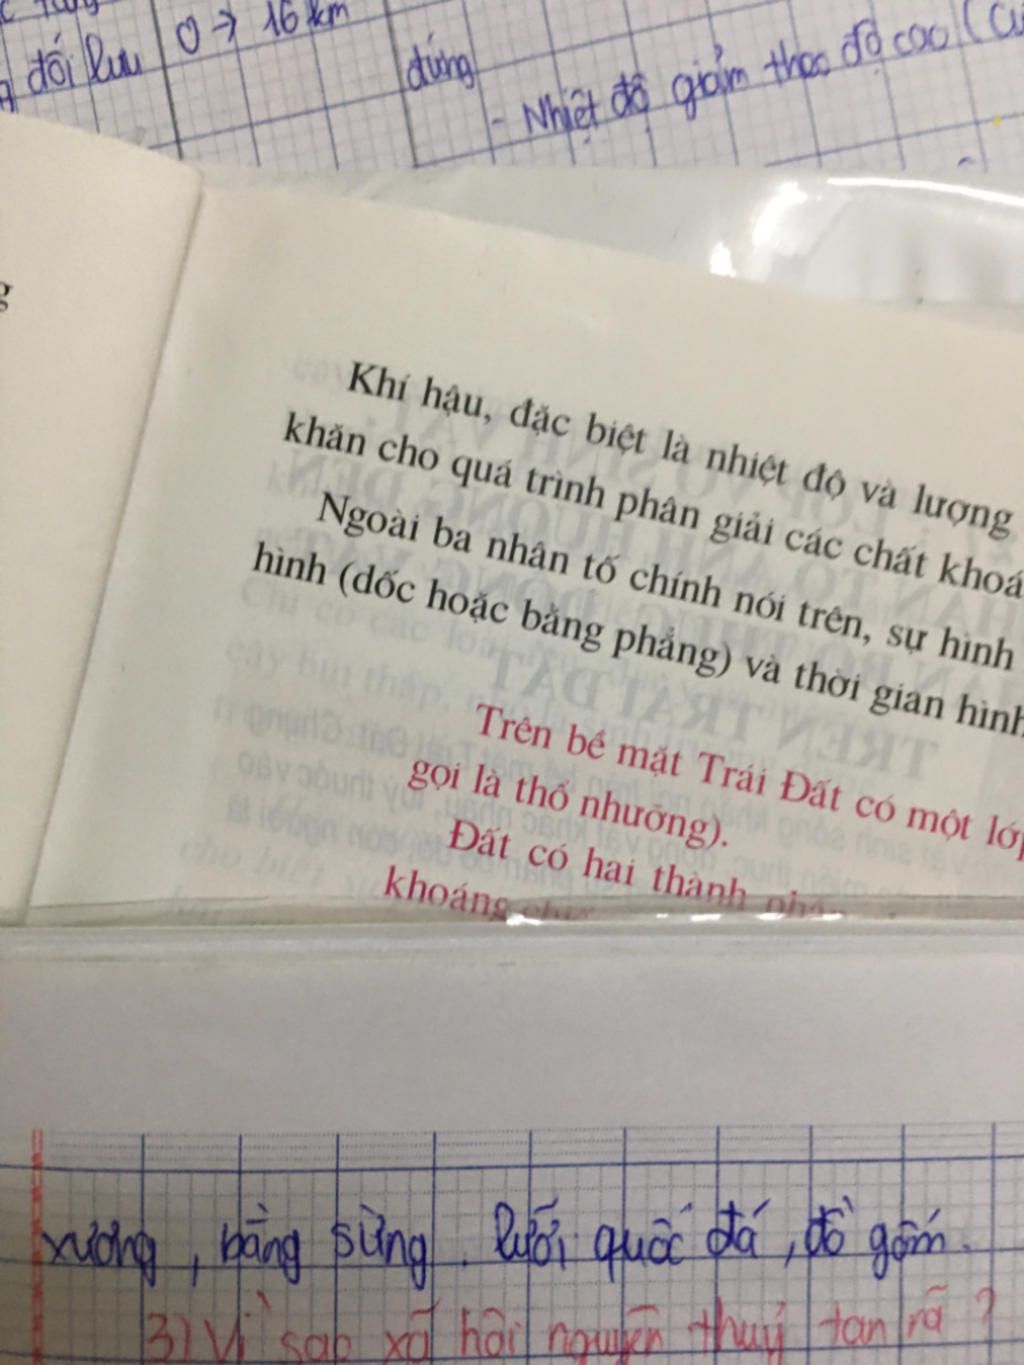 đối lưu 0 → 16 km
đứng
- Nhiệt độ giảm theo độ cao (
Khí hậu, đặc biệt là nhiệt độ và lượng
khăn cho quá trình phân giải các chất khoá
Ngoài ba nhân tố chính nói trên, sự hình
hình (dốc hoặc bằng phẳng) và thời gian hình
Trên bề mặt Trái Đất có một lớp
gọi là thổ nhưỡng).
Đất có hai thành phần
khoáng
xương, bằng sừng. lưỡi quốc đá, đồ gốm.
3) Vì sao xã hội nguyên thuỷ tan rã?